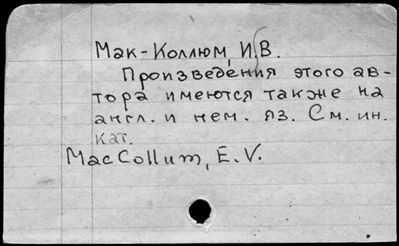 Мак-Коллюм, И.В.
Произведения этого ав-
тора имеются также на
англ. и нем. яз. См. ин.
кат.
MacCollum, E.V.